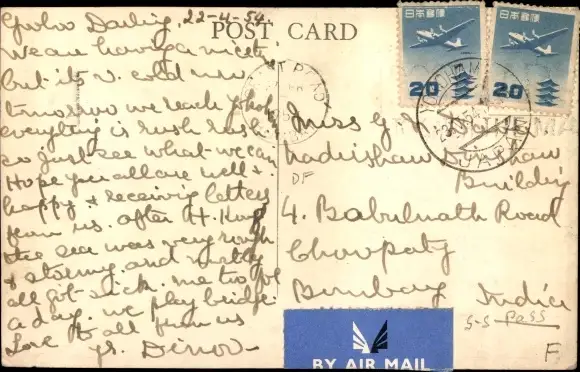 Darling. 22-4-54.
POST CARD
We are having a nice t
but its v. cold now
tomorrow we reach Yokoh
everything is rush rush
so just see what we can
Hope you all are well &
happy & receiving letters
from us. after H. Kong
the sea was very rough
& stormy. and mostly
all got sick. me too for
a day. we play bridge.
Love to all from us
yr.
日本郵便
20
日本郵便
20
JAPAN
Miss
DF
Building
4. Babulnath Road
Chowpaty
Bombay India
S-S Pass
BY AIR MAIL
F